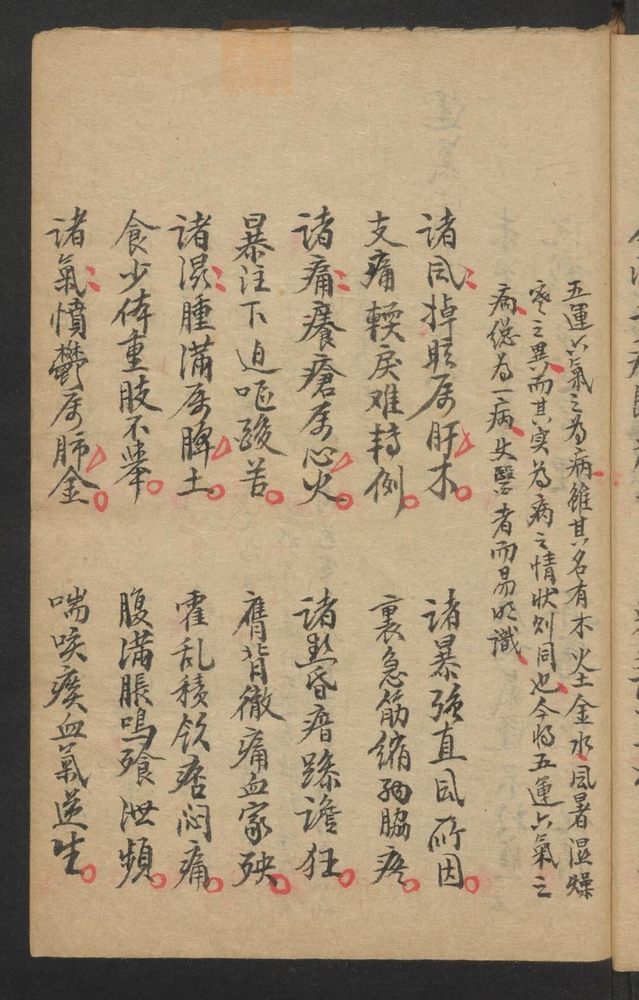 五運六氣之為病雖其名有木火土金水風暑湿燥
寒之異而其实為病之情状则同也今将五運六氣之
病總為一病失醫者而易明識
诸風掉眩属肝木 诸暴强直風所因
支痛軟戾难轉側 裏急筋縮两脇疼
诸痛癢瘡属心火 诸熱昏瘖躁谵狂
暴注下迫嘔酸苦 膺背徹痛血家殃
诸濕腫满属脾土 霍乱積饮痞闷痛
食少体重肢不舉 腹满脹鳴飱泄頻
诸氣憤鬱属肺金 喘咳痰血氣逆生